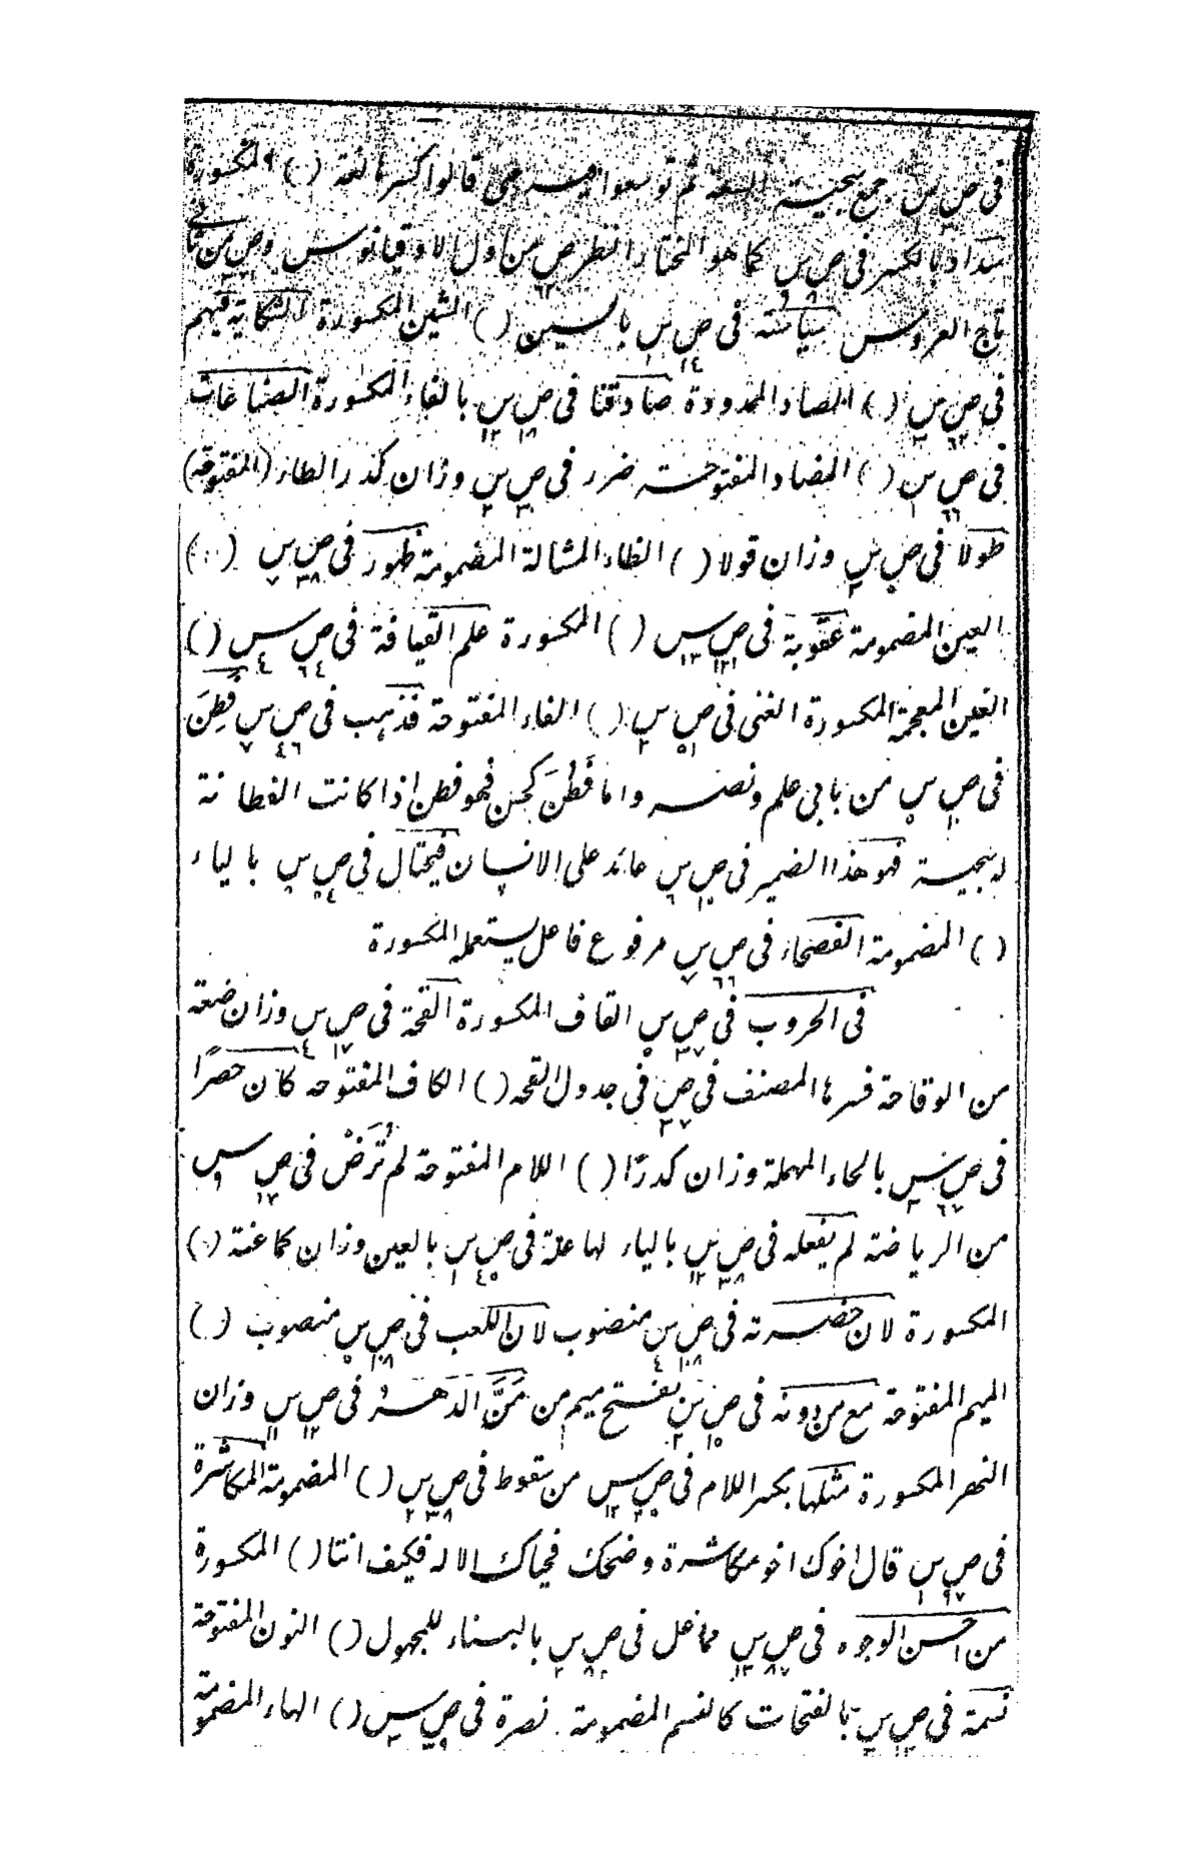 فى ص س جمع سجية السعة ثم توسعوا فيه حتى قالوا كسرها لغة ( ) المكسورة
سدادبالكسر فى ص س كما هو المختار انظر ص من اول الاوقيانوس وص من ثانى
تاج العروس سياسة فى ص ١٤ س بالسين ( ) الشين المكسورة الشكاية فيهم
فى ص ٦٢ س ( ) الصاد الممدودة صادقنا فى ص ١٨ س ١٢ بالفاء المكسورة الصناعات
فى ص ٦٦ س ( ) الضاد المفتوحة ضرر فى ص س وزان كذر الطاء (المفتوحة)
طولا فى ص س وزان قولا ( ) الظاء المشالة المضمومة ظهور فى ص ٣٨ س ٧ ( )
العين المضمومة عقوبة فى ص ١٣١ س ١٢ ( ) المكسورة علم القيافة فى ص ٦٤ س ٤ ( )
الغين المعجمة المكسورة الغنى فى ص ٥١ س ٢ ( ) الفاء المفتوحة فذهب فى ص ٤٦ س ٧ فَطِنَ
فى ص س من بابى علم ونصر واما فَطُنَ كحسن فهو فطن اذا كانت الفطانة
له سجية فهو هذا الضمير فى ص س ٦ عائد على الانسان فيختال فى ص س بالياء
( ) المضمومة الفصحاء فى ص ٦٦ س ٧ مرفوع فاعل يستعمله المكسورة
فى الحروب فى ص ٣٧ س القاف المكسورة القحة فى ص ١٧ س ٤ وزان ضعة
من الوقاحة فسرها المصنف فى ص ٢٧ فى جدول القحه ( ) الكاف المفتوحه كان حصرًا
فى ص ٦٧ س ٢ بالحاء المهملة وزان كدرًا ( ) اللام المفتوحة لم تُرَضْ فى ص ١٧ س ٩
من الرياضة لم يفعله فى ص ٣٨ س ١٢ بالياء لها علة فى ص ٤٥ س ١ بالعين وزان كما عنة ( )
المكسورة لان حضرته فى ص ١٠٨ س ٤ منصوب لان اللعب فى ص ١٠٨ س ٥ منصوب ( )
الميم المفتوحة مع من دونه فى ص ١٥ س ٢ بفتح ميم من مَنَّ الدهر فى ص ١٢ س ١١ وزان
النهر المكسورة مثلها بكسر اللام فى ص ٢٥ س ١٢ من سقوط فى ص ٣٨ س ٢ ( ) المضمومة المكاشرة
فى ص ٩٧ س ١ قال اخوك اخو مكاشرة وضحك فحياك الاله فكيف انتا ( ) المكسورة
من احسن الوجوه فى ص ٨٧ س ١٢ مما عل فى ص ٨٢ س ٢ بالبناء للمجهول ( ) النون المفتوحة
نسمة فى ص ١٢ س بالفتحات كالفم المضمومة نصرة فى ص س ( ) الهاء المضمومة